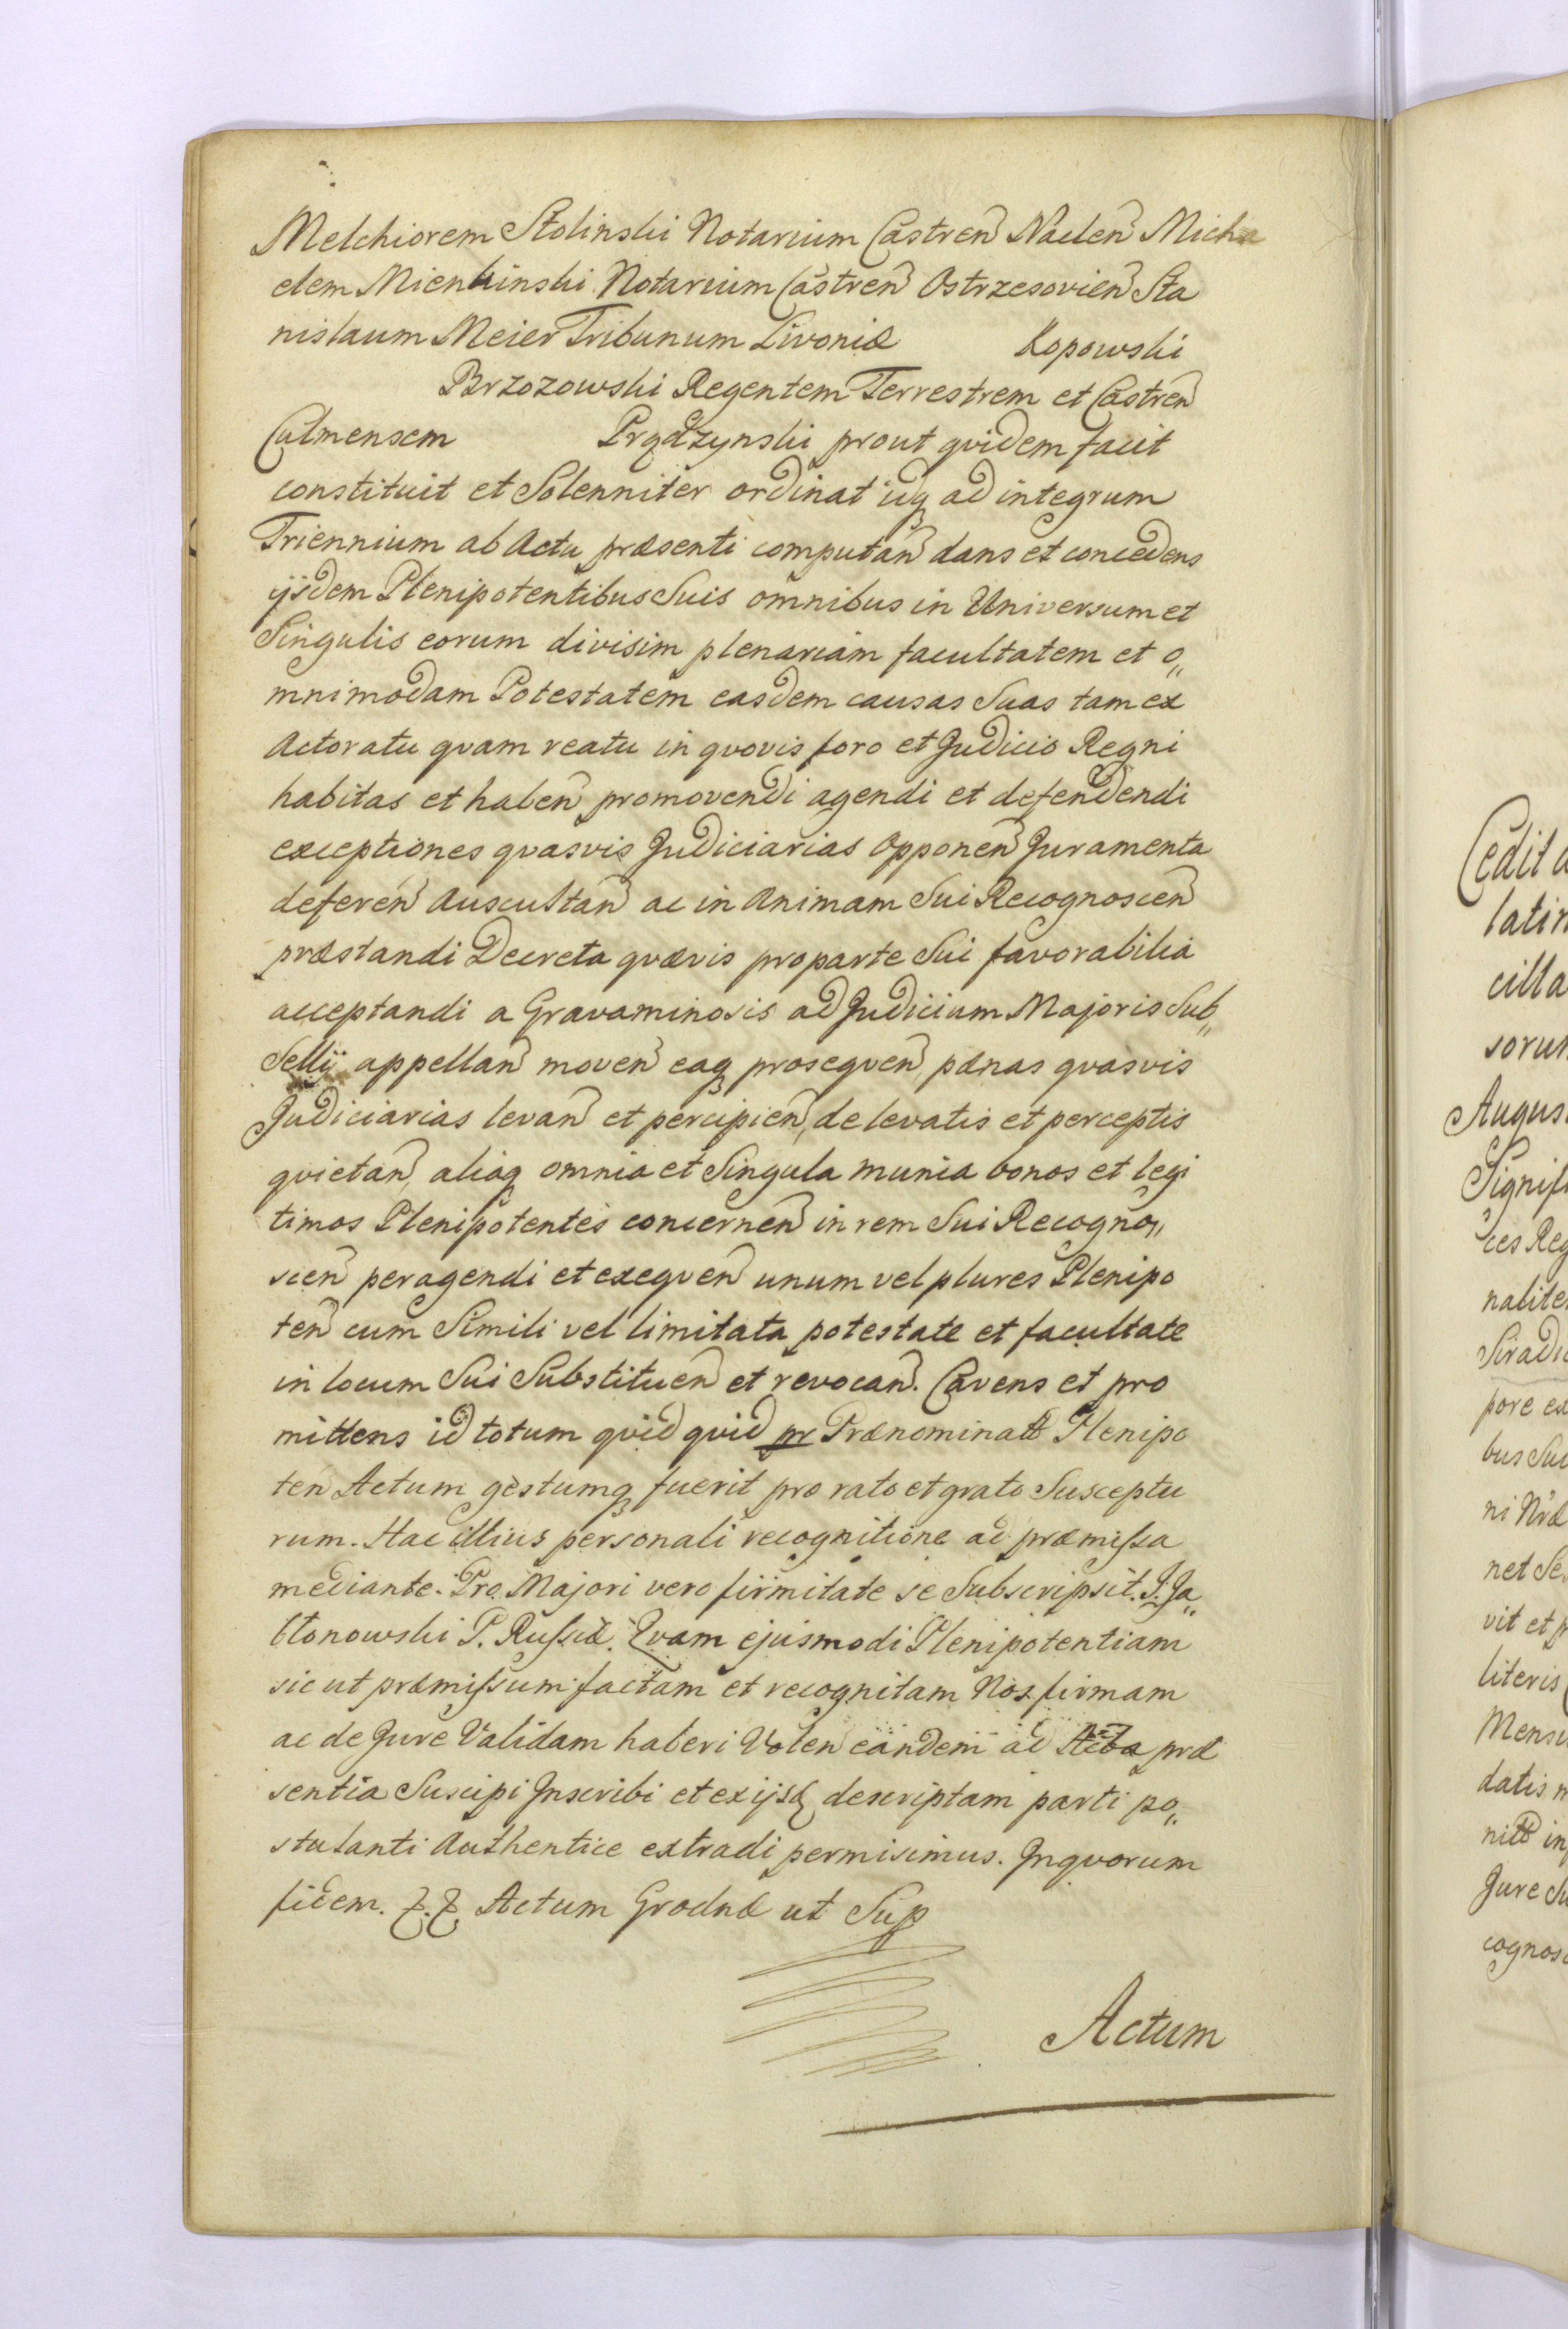 Melchiorem Stolinski Notarium Castren Naclen Micha
elem Mienkinski Notarium Castren Ostrzesovien Sta
nislaum Meier Tribunum Livoniæ Kopowski
Brzozowski Regentem Terrestrem et Castren
Culmensem Prądzynski prout qvidem facit
constituit et Solenniter ordinat idq ad integrum
Triennium ab Actu præsenti computan dans et concedens
ijsdem Plenipotentibus Suis omnibus in Universum et
Singulis eorum divisim plenariam facultatem et o„
mnimodam Potestatem easdem causas Suas tam ex
Actoratu qvam reatu in qvovis foro et Judicio Regni
habitas et haben promovendi agendi et defendendi
exceptiones qvasvis Judiciarias Opponen Juramenta
deferen Auscultan ac in Animam Sui Recognoscen
præstandi Decreta qvævis pro parte Sui favorabilia
acceptandi a Gravaminosis ad Judicium Majoris Sub„
Sellij appellan moven eaq prosequen, pænas qvasvis
Judiciarias levan et percipien, de levatis et perceptis
qvietan, aliaq omnia et Singula munia bonos et legi
timos Plenipotentes concernen in rem Sui Recogno„
scen peragendi et exeqven unum vel plures Plenipo
ten cum Simili vel limitata potestate et facultate
in locum Sui Substituen et revocan. Cavens et pro
mittens id totum qvid qvid pr Prænominatt Plenipo
ten Actum gestumq fuerit pro rato et grato Susceptu
rum. Hac illius personali recognitione ad præmissa
mediante. Pro Majori vero firmitate se Subscripsit. J. Ja„
błonowski P. Russiæ. Qvam ejusmodi Plenipotentiam
sic ut præmissum factam et recognitam Nos firmam
ac de Jure Validam haberi Volen eandem ad Acta præ
sentia Suscipi Inscribi et ex ijsd descriptam parti po„
stulanti Authentice extradi permisimus. In qvorum
fidem. &. &. Actum Grodnæ ut Sup
Actum
Cedit a
latin
cilla
sorum
August
Signif
ces Reg
nalite
Siradi
pore ex
bus Sui
ni Nræ
net Se
vit et p
literis
Mensi
datis m
nitt in
Jure Su
cognos